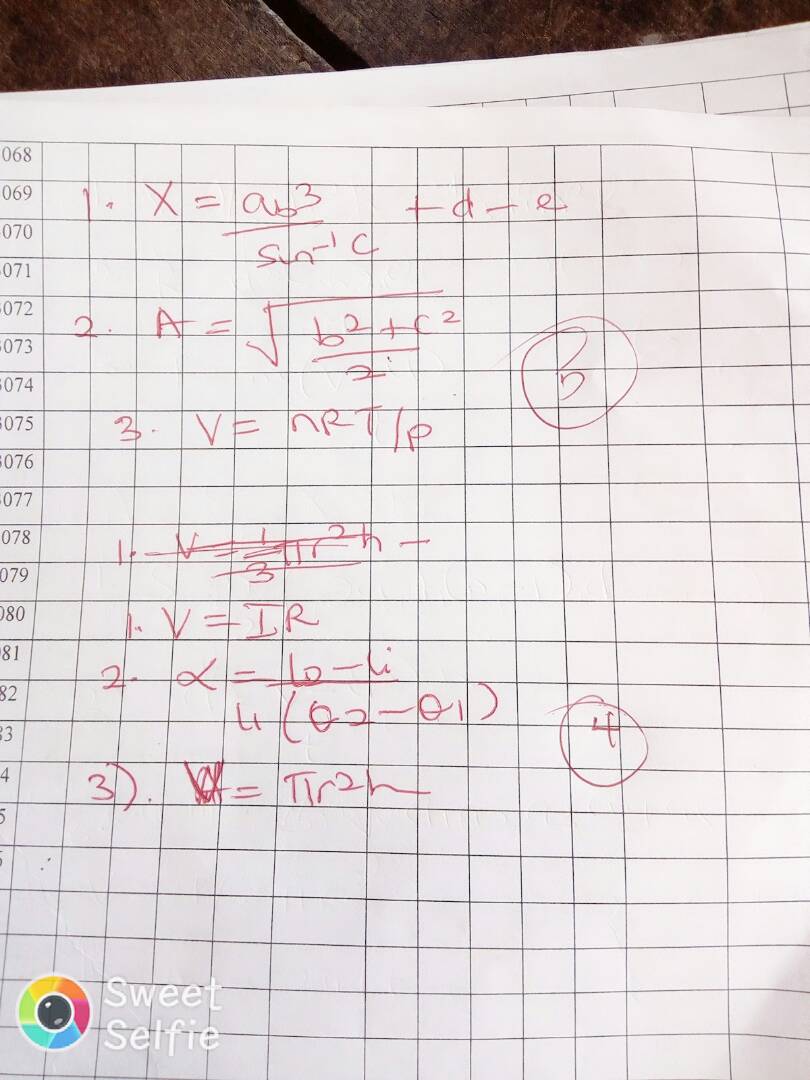 068
069
070
071
072
073
074
075
076
077
078
079
080
081
82
83
1. X = ab³ / sin⁻¹ C + d - e
2. A = √(b² + c² / 2)
3. V = nRT/p
1. V = 1/3 πr²h -
1. V = IR
2. α = / (θ2 - θ1)
4
3). = πr²h
Sweet
Selfie